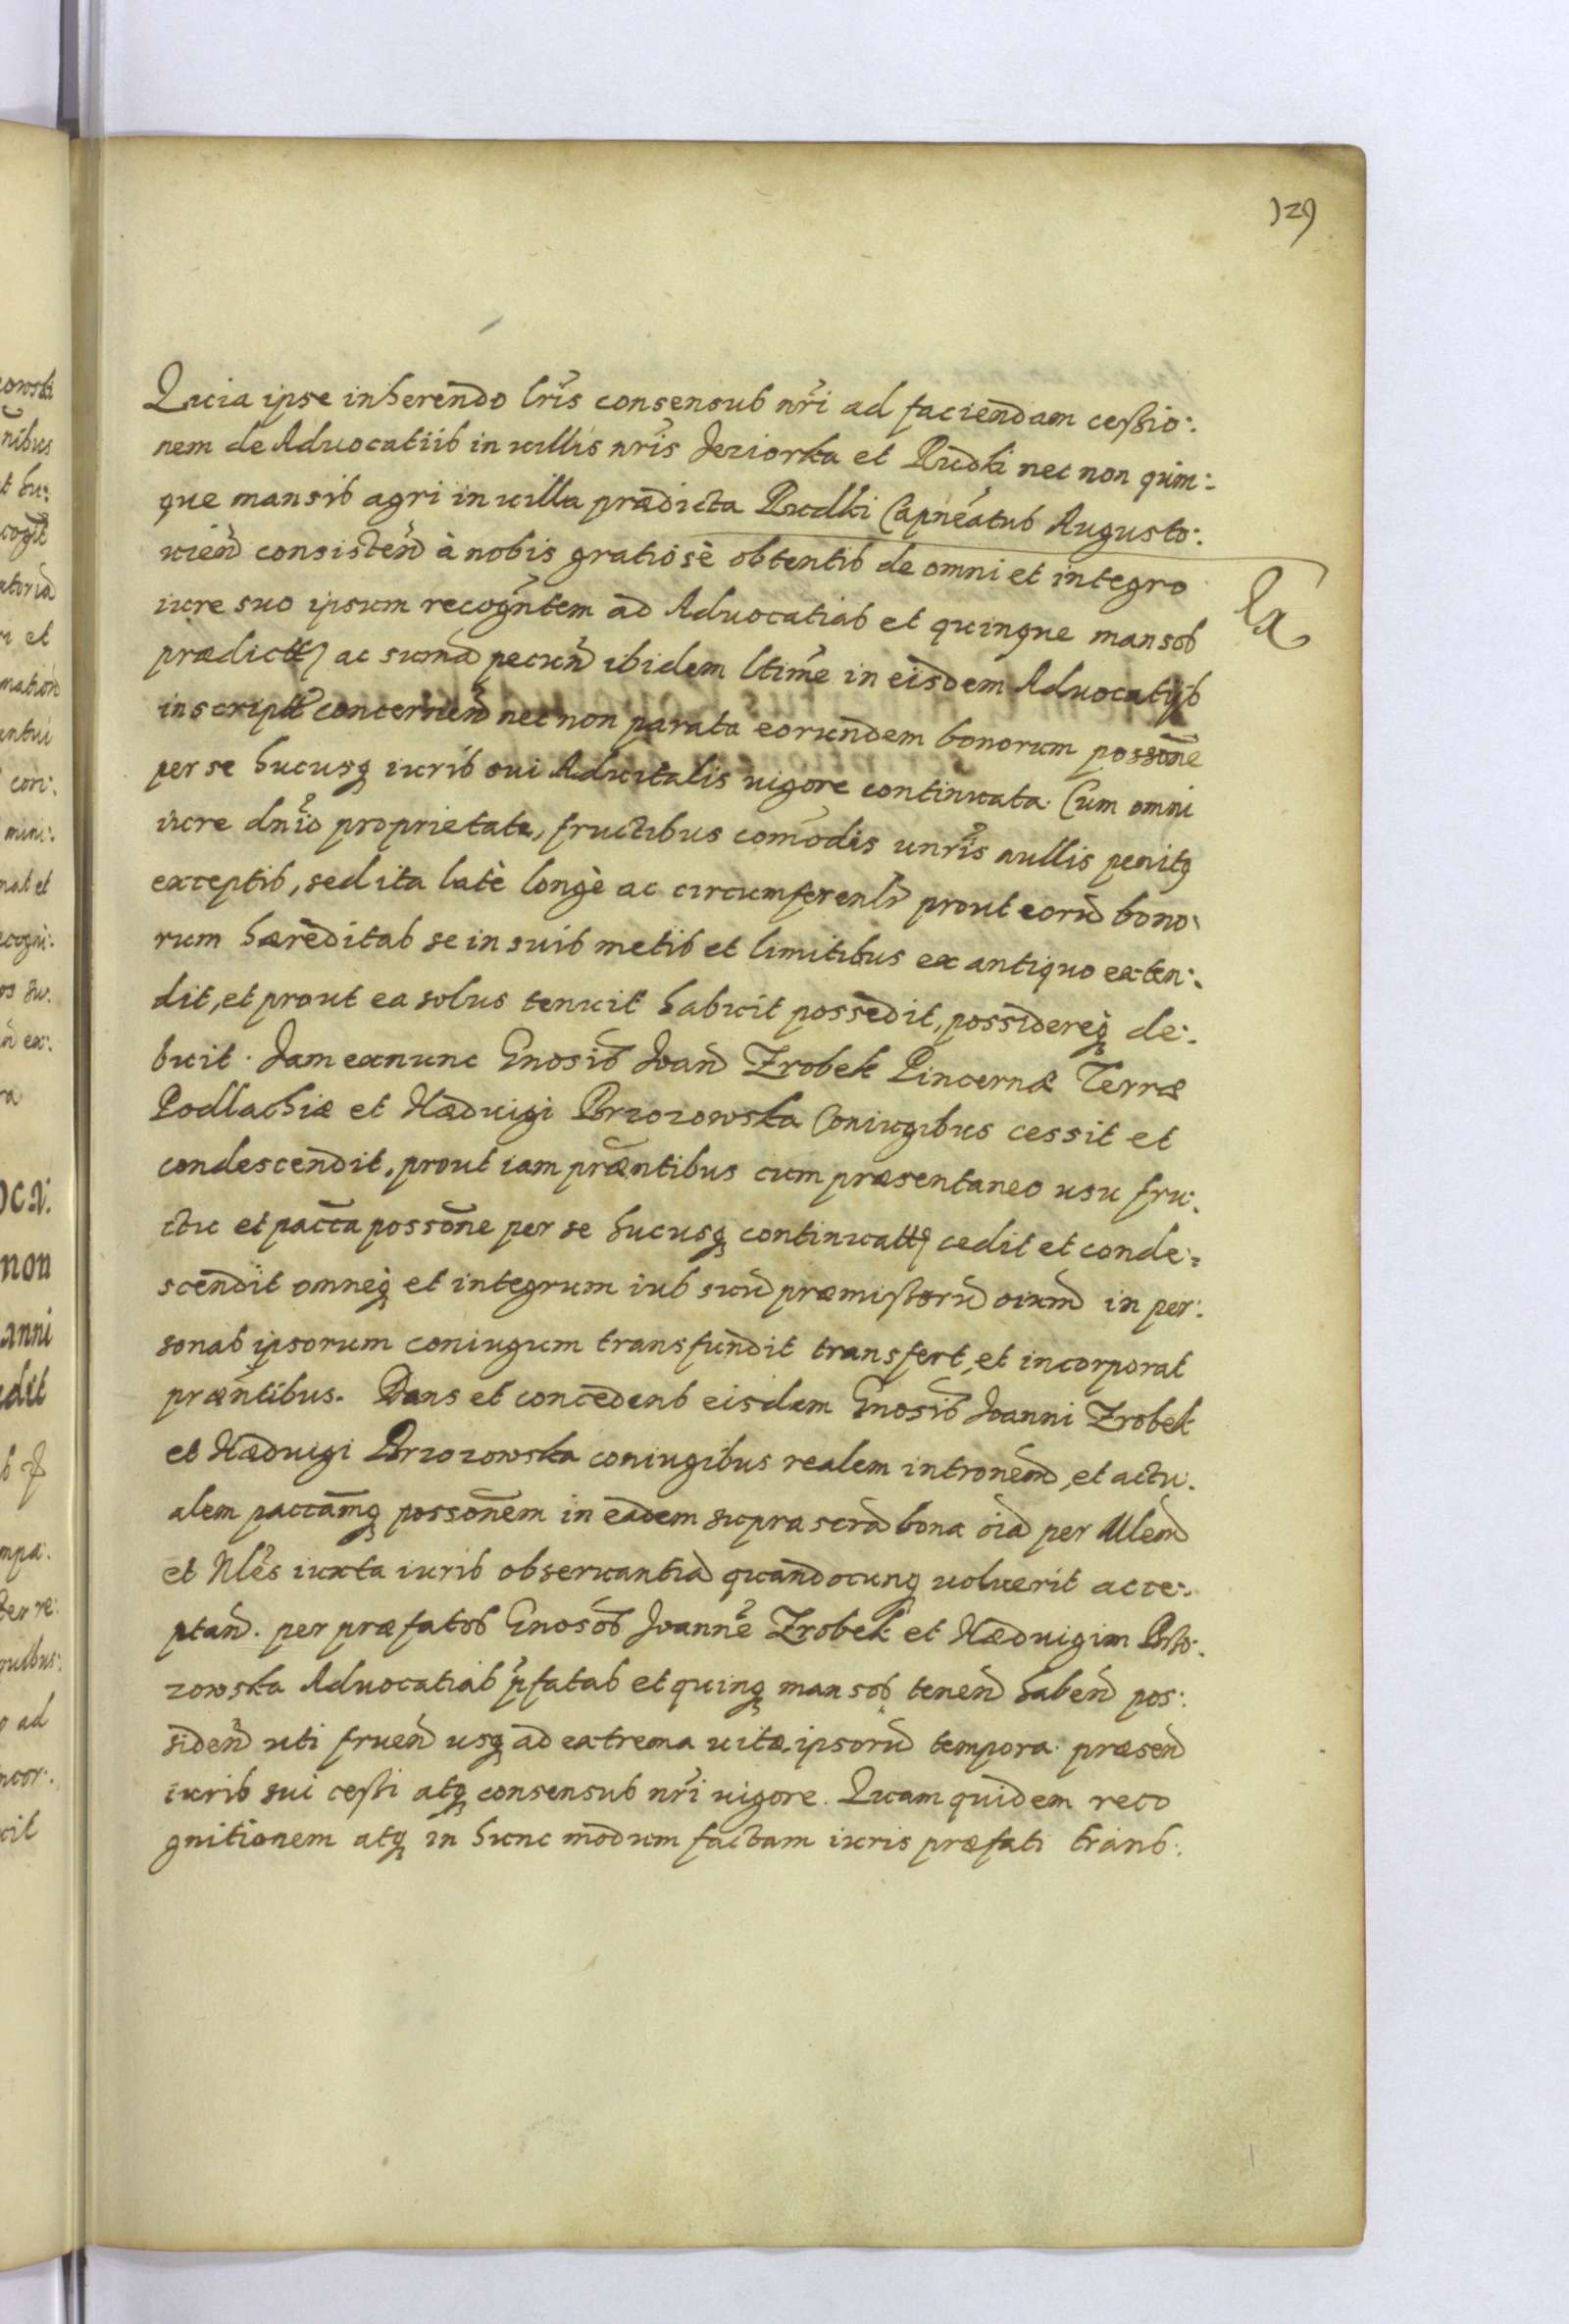 129
Quia ipse inhærendo lris consensus nri ad faciendam cessio:
nem de Aduocatiis in uillis nris Jeziorka et Rudki nec non quin:
que mansis agri in uilla prædicta Rudki Capneatus Augusto:
uien consisten à nobis gratiosè obtentis de omni et integro
iure suo ipsum recogntem ad Aduocatias et quinque mansos
prædict ac suma pecun ibidem ltime in eisdem Aduocatijs
inscript concernen nec non parata eorundem bonorum possone
per se hucusq iuris sui Aduitalis uigore continuata. Cum omni
iure dnio proprietate, fructibus comodis unris nullis penitq
exceptis, sed ita latè longè ac circumferentr prout eoru bono:
rum hæreditas se in suis metis et limitibus ex antiquo exten:
dit, et prout ea solus tenuit habuit possedit, possidereq de:
buit. Jam exnunc Gnosis Joan Zrobek Pincernæ Terræ
Podlachiæ et Hæduigi Brzozowska Coniugibus cessit et
condescendit, prout iam præntibus cum præsentaneo usu fru:
ctu et pacca possone per se hucusq continuatt cedit et conde:
scendit omneq et integrum ius suu præmissoru oium in per:
sonas ipsorum coniugum transfundit transfert, et incorporat
præntibus. Dans et concedens eisdem Gnosis Joanni Zrobek
et Hæduigi Brzozowska coniugibus realem intronem, et actu:
alem paccamq possonem in eadem suprascra bona oia per Mlem
et Nles iuxta iuris obseruantia quandocunq uoluerit acce:
ptan. per præfatos Gnosos Joanne Zrobek et Hæduigim Brzo:
zowska Aduocatias pfatas et quinq mansos tenen haben pos:
siden uti fruen usq ad extrema uitæ ipsoru tempora præsen
iuris sui cessi atq consensus nri uigore. Quam quidem reco
gnitionem atq in hunc modum factam iuris præfati trans: